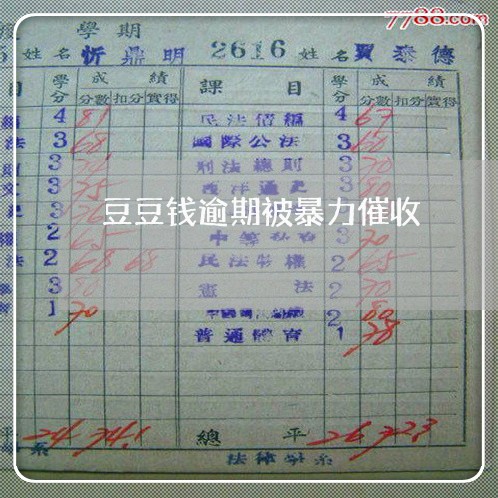 7788.com
學期
姓名 忻鼎明 2616 姓名 賈泰德
目 學分 成績 課目 學分 成績
分數 扣分 實得 分數 扣分 實得
4 81 民法債編 4 67
法 3 68 國際公法 3 60
3 刑法總則 3 70
3 75 西洋通史 3 80
豆豆钱逾期被暴力催收
2 65 3 70
法 2 68 68 民法物權 2 65
3 80 憲法 2 70
1 70 2 80
普通體育 1 78
平 24 74.1 總平 26 72.3
系 法律學系